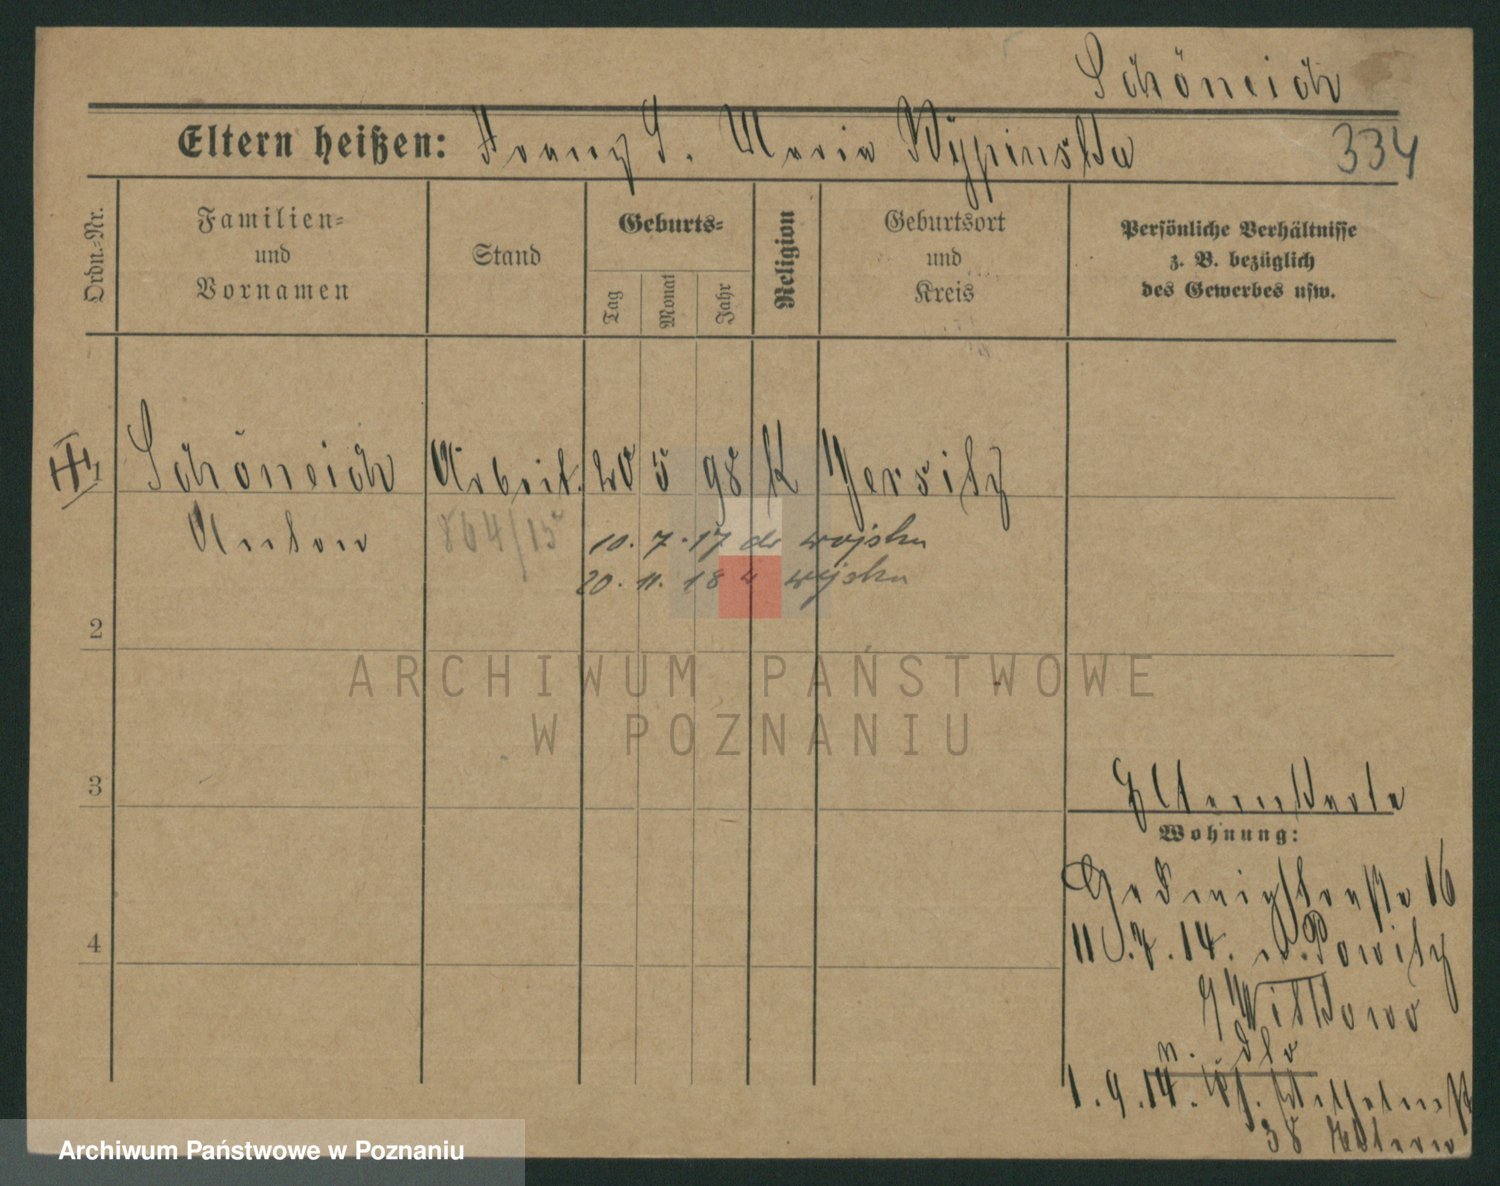 Schöneich
Eltern heißen: Franz S. Maria Wypinska
334
Ordn.=Nr.
Familien=
und
Vornamen
Stand
Geburts=
Tag
Monat
Jahr
Religion
Geburtsort
und
Kreis
Persönliche Verhältnisse
z. B. bezüglich
des Gewerbes usw.
1 Schöneich Arbeit. 20 5 98 K Jersitz
Anton 864/15 10. 7. 17 do wojska
20. 11. 18 z wojska
2
ARCHIWUM PAŃSTWOWE
W POZNANIU
3
Elternkarte
Wohnung:
16
4
11.7.14. n. Powitz
Witkowo
n.
1.9.14. Wilhelmst
38 Eltern
Archiwum Państwowe w Poznaniu